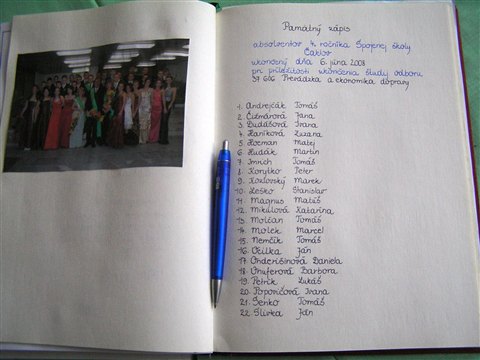 Pamätný zápis
absolventov 4. ročníka Spojenej školy
Čaklov
vykonaný dňa 6. júna 2008
pri príležitosti ukončenia štúdia odboru
37 6 Prevádzka a ekonomika dopravy
1. Andrejčák Tomáš
2. Čižmárová Jana
3. Dudášová Ivana
4. Haníková Zuzana
5. Hocman Matej
6. Hudák Martin
7. Imrich Tomáš
8. Korytko Peter
9. Kozlovský Marek
10. Leško Stanislav
11. Magnus Matúš
12. Mikulová Katarína
13. Molčan Tomáš
14. Molek Marcel
15. Nemčík Tomáš
16. Ján
17. Onderišinová Daniela
18. Onuferová Barbora
19. Petrik Lukáš
20. Popovičová Ivana
21. Senko Tomáš
22. Slivka Ján